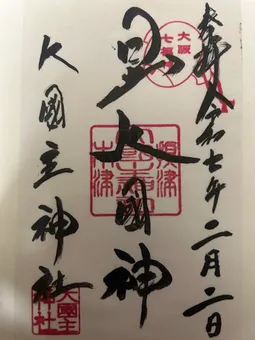 奉拝 令和七年二月二日
大阪
七福神
日出大國神
木津
大國主神社
大國主
神社